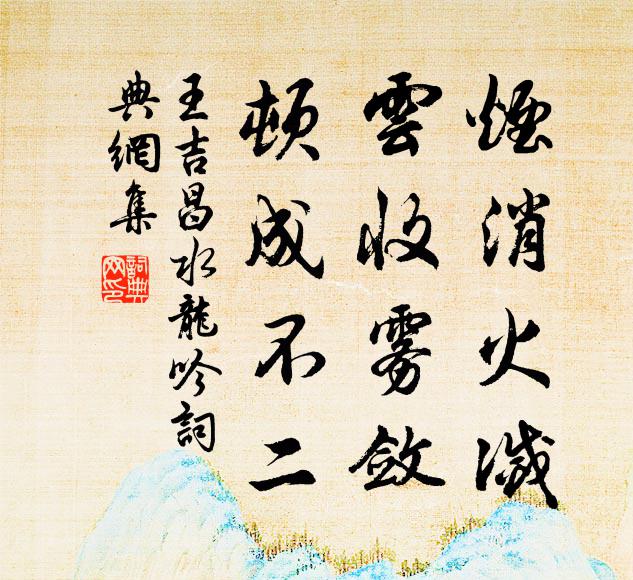 煙消火滅
雲收雾斂
頓成不二
王吉昌水龍吟詞
典網集
詞典网印